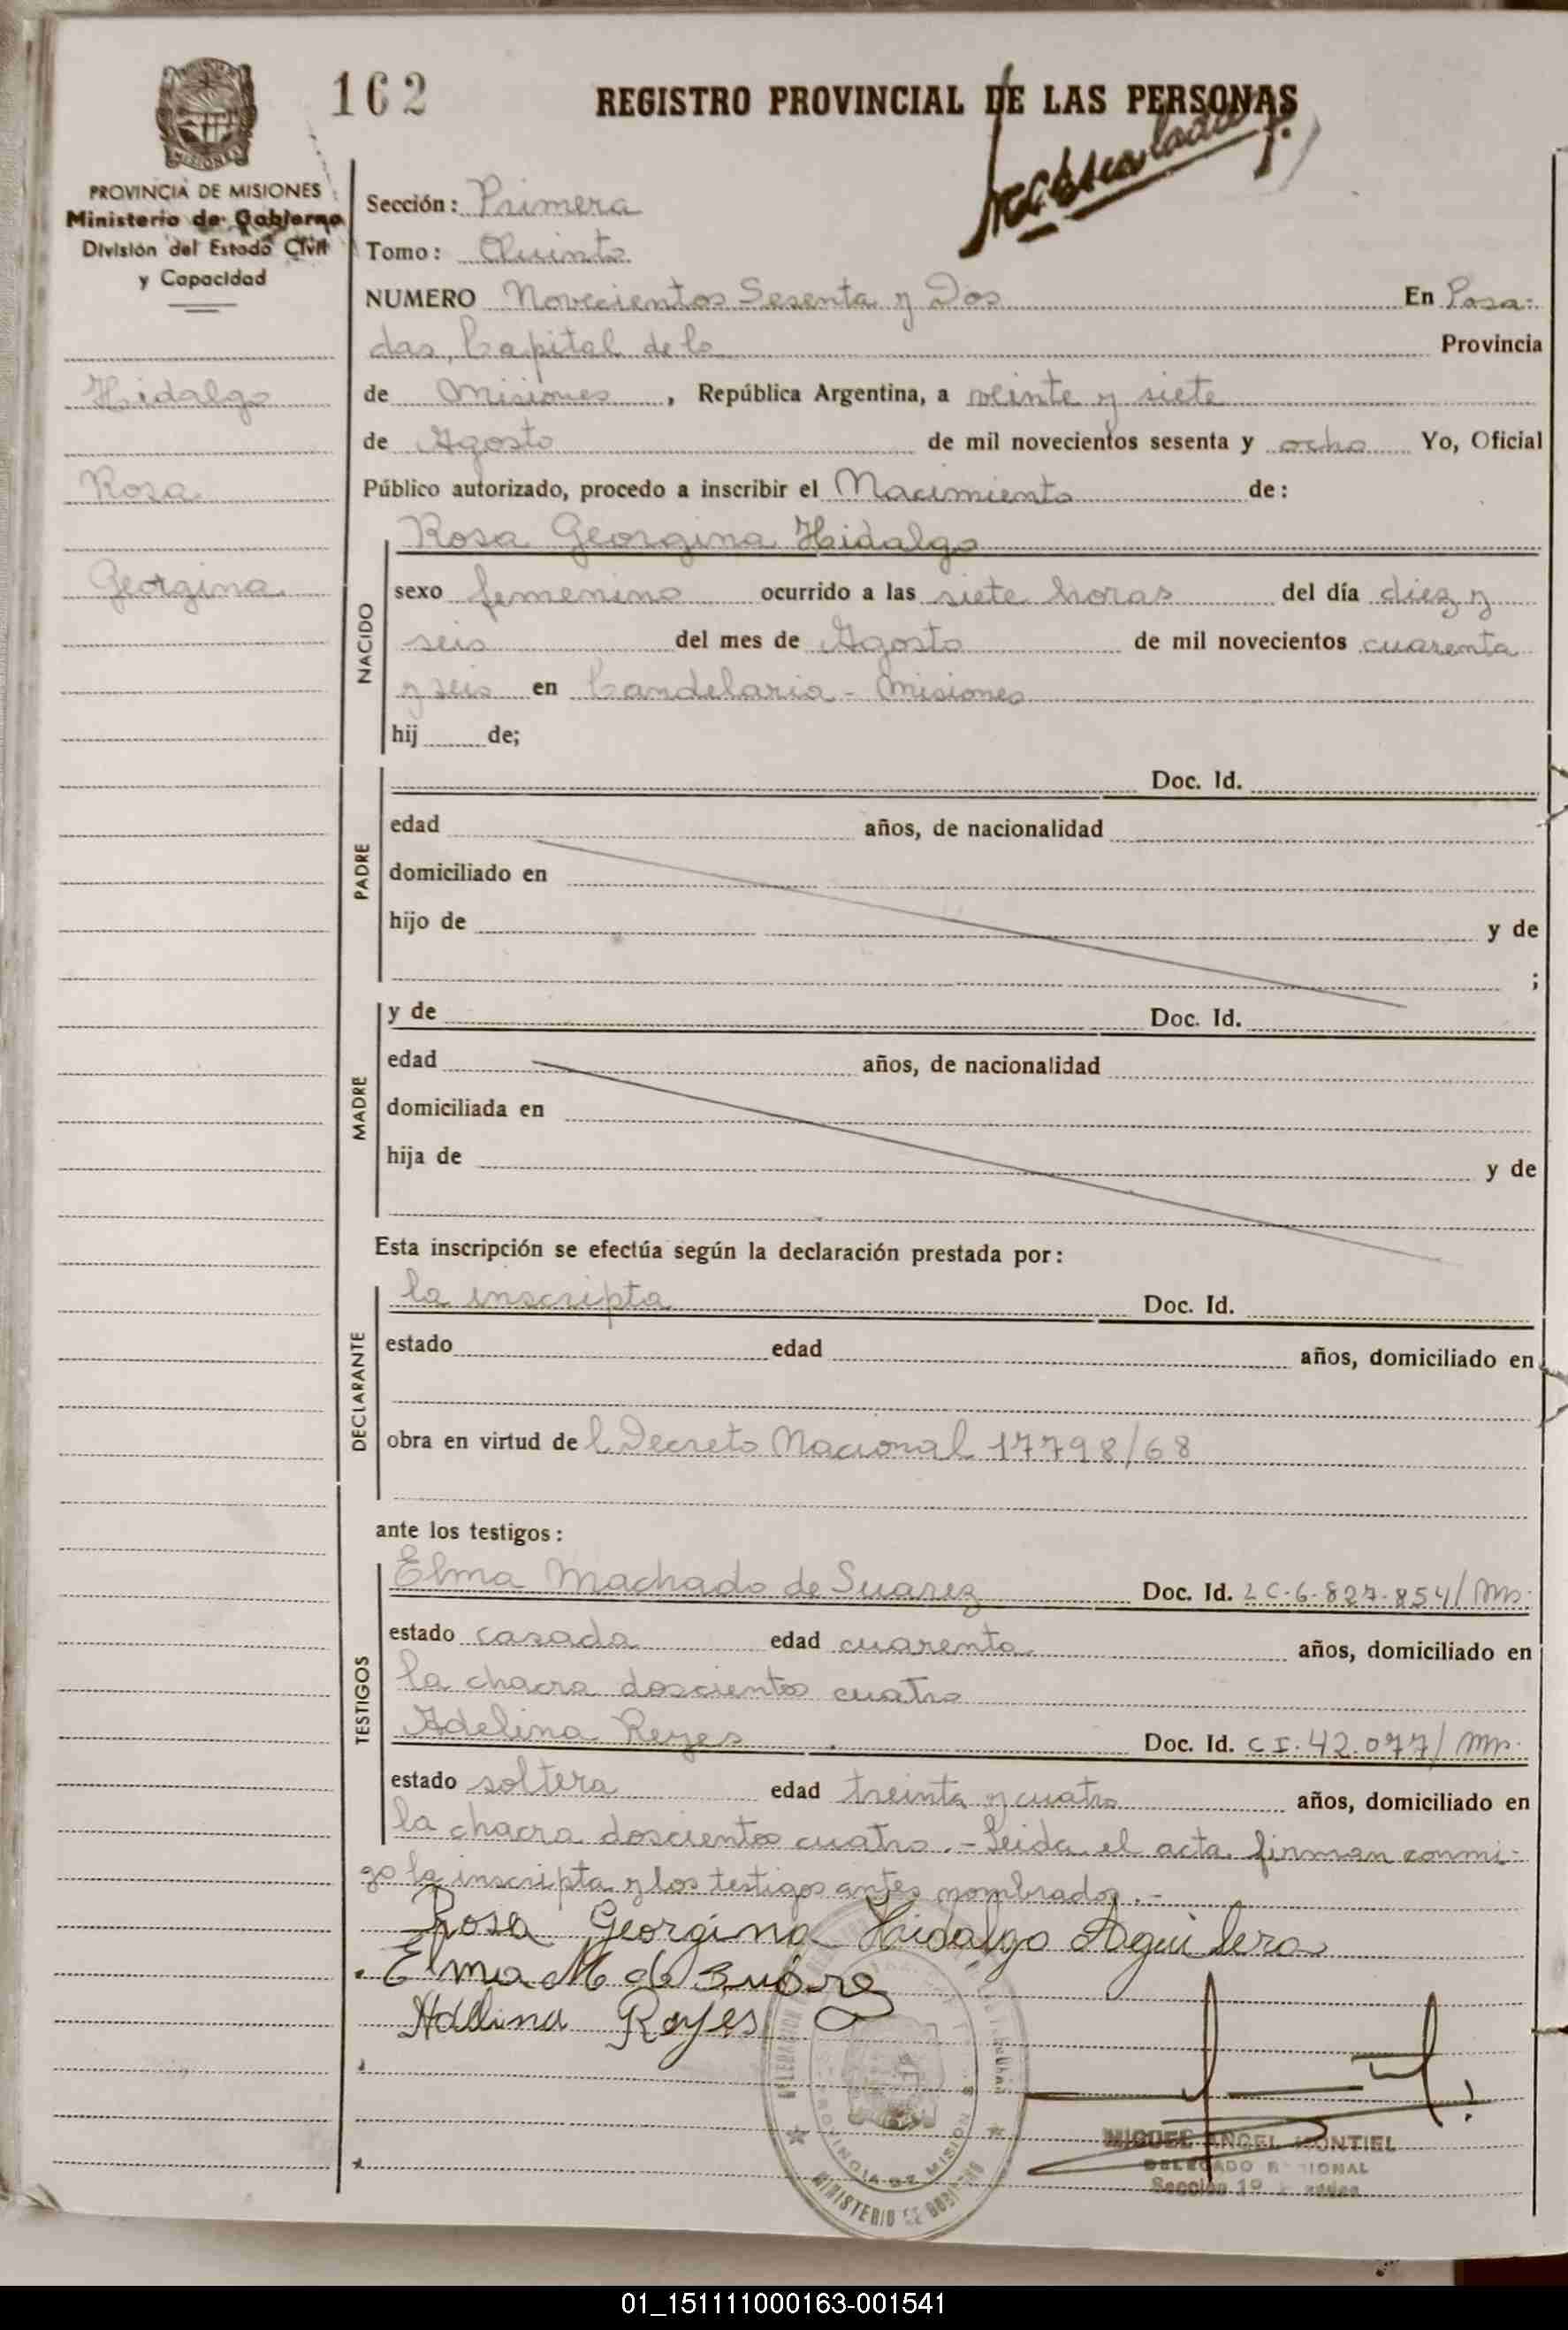 162
REGISTRO PROVINCIAL DE LAS PERSONAS
PROVINCIA DE MISIONES
Ministerio de Gobierno
División del Estado Civil
y Capacidad
Hidalgo
Rosa
Georgina
Sección: Primera
Tomo: Quinto
NUMERO Novecientos Sesenta y Dos En Posa-
das, Capital de la Provincia
de Misiones, República Argentina, a veinte y siete
de Agosto de mil novecientos sesenta y ocho Yo, Oficial
Público autorizado, procedo a inscribir el Nacimiento de:
NACIDO
Rosa Georgina Hidalgo
sexo femenino ocurrido a las siete horas del día diez y
seis del mes de Agosto de mil novecientos cuarenta
y seis en Candelaria - Misiones
hij de;
PADRE
Doc. Id.
edad años, de nacionalidad
domiciliado en
hijo de y de
;
MADRE
y de Doc. Id.
edad años, de nacionalidad
domiciliada en
hija de y de
Esta inscripción se efectúa según la declaración prestada por:
DECLARANTE
la inscripta Doc. Id.
estado edad años, domiciliado en
obra en virtud del Decreto Nacional 17798/68
ante los testigos:
TESTIGOS
Elma Machado de Suarez Doc. Id. LC.6.827.854/Mns.
estado casada edad cuarenta años, domiciliado en
la chacra doscientos cuatro
Adelina Reyes Doc. Id. CI.42.077/Mns.
estado soltera edad treinta y cuatro años, domiciliado en
la chacra doscientos cuatro.- Leida el acta firman conmi-
go la inscripta y los testigos antes nombrados.-
Rosa Georgina Hidalgo Aguilera
Elma M de Suárez
Adelina Reyes
PROVINCIA DE MISIONES
MINISTERIO DE GOBIERNO
MIGUEL ANGEL MONTIEL
DELEGADO REGIONAL
Sección 1º
01_151111000163-001541